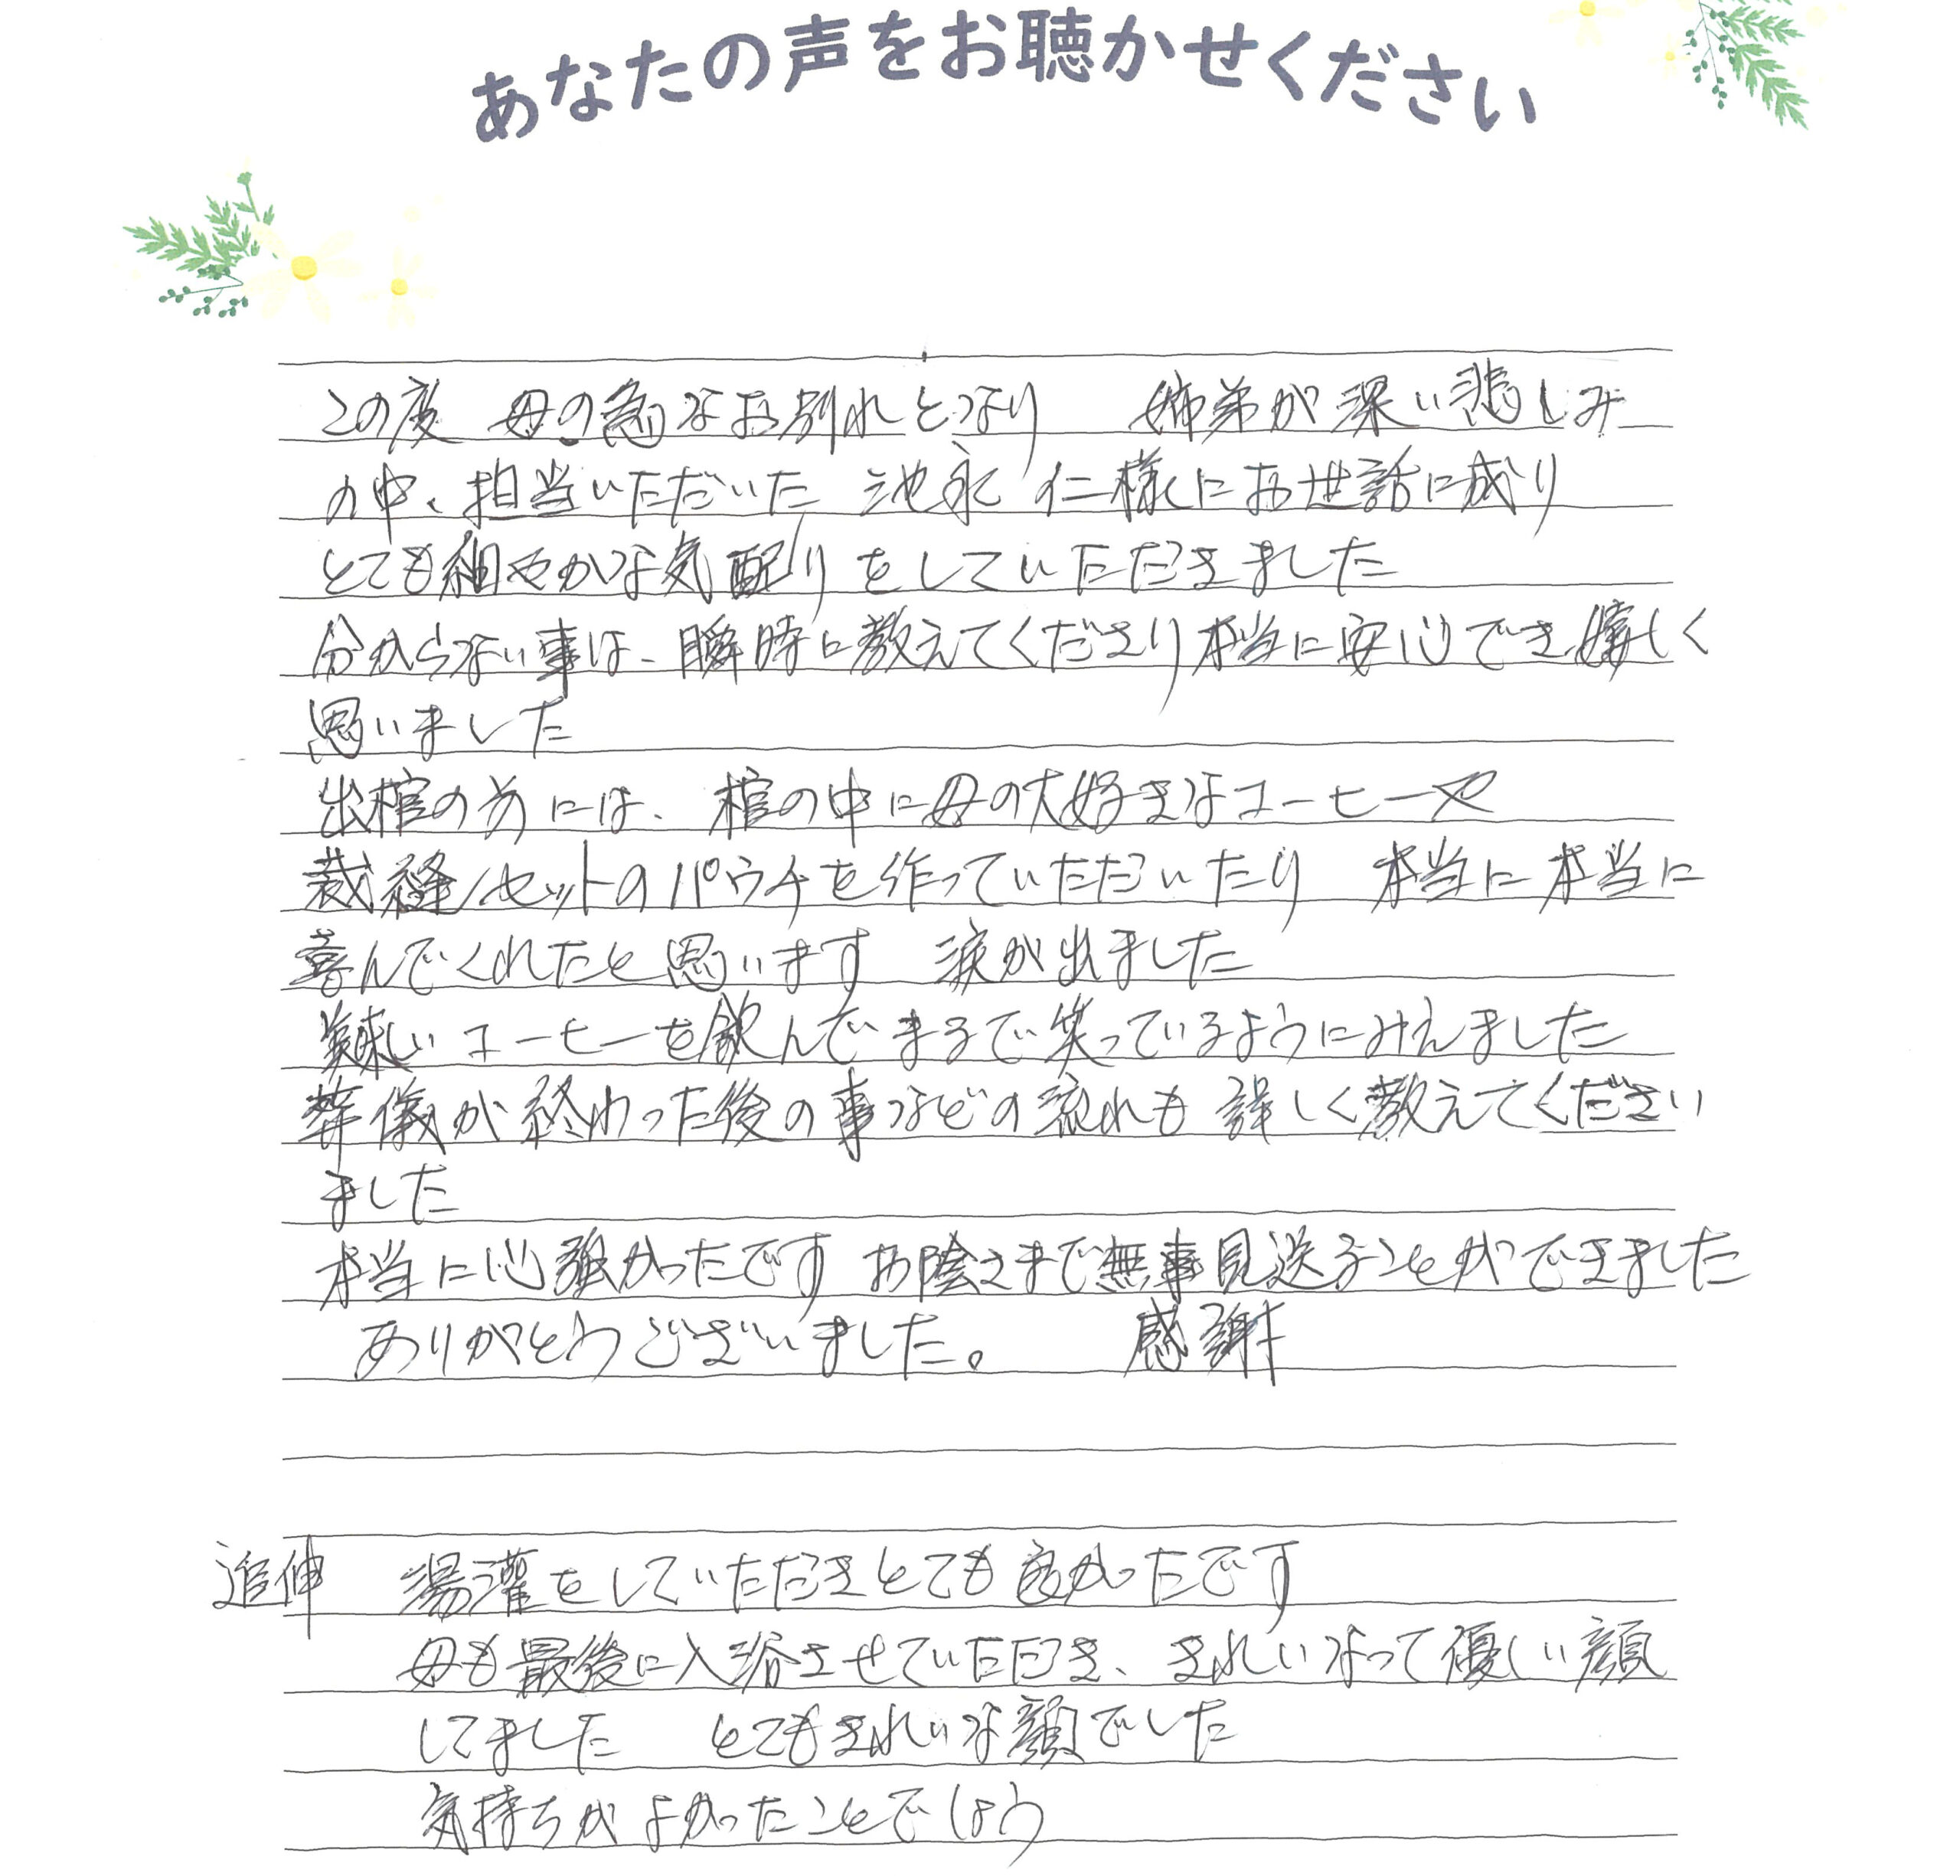 あなたの声をお聴かせください
この度 母の急なお別れとなり 姉弟が深い悲しみ
の中、担当いただいた 池永 仁様にお世話に成り
とても細やかな気配りをしていただきました
分からない事は、瞬時に教えてくださり本当に安心でき嬉しく
思いました
出棺の前には、棺の中に母の大好きなコーヒーや
裁縫セットのパウチを作っていただいたり 本当に本当に
喜んでくれたと思います 涙が出ました
美味しいコーヒーを飲んでまるで笑っているようにみえました
葬儀が終わった後の事などの流れも詳しく教えてください
ました
本当に心強かったです お陰さまで無事見送ることができました
ありがとうございました。 感謝
追伸 湯灌をしていただきとても良かったです
母も最後に入浴させていただき、きれいなって優しい顔
してました とてもきれいな顔でした
気持ちがよかったことでしょう